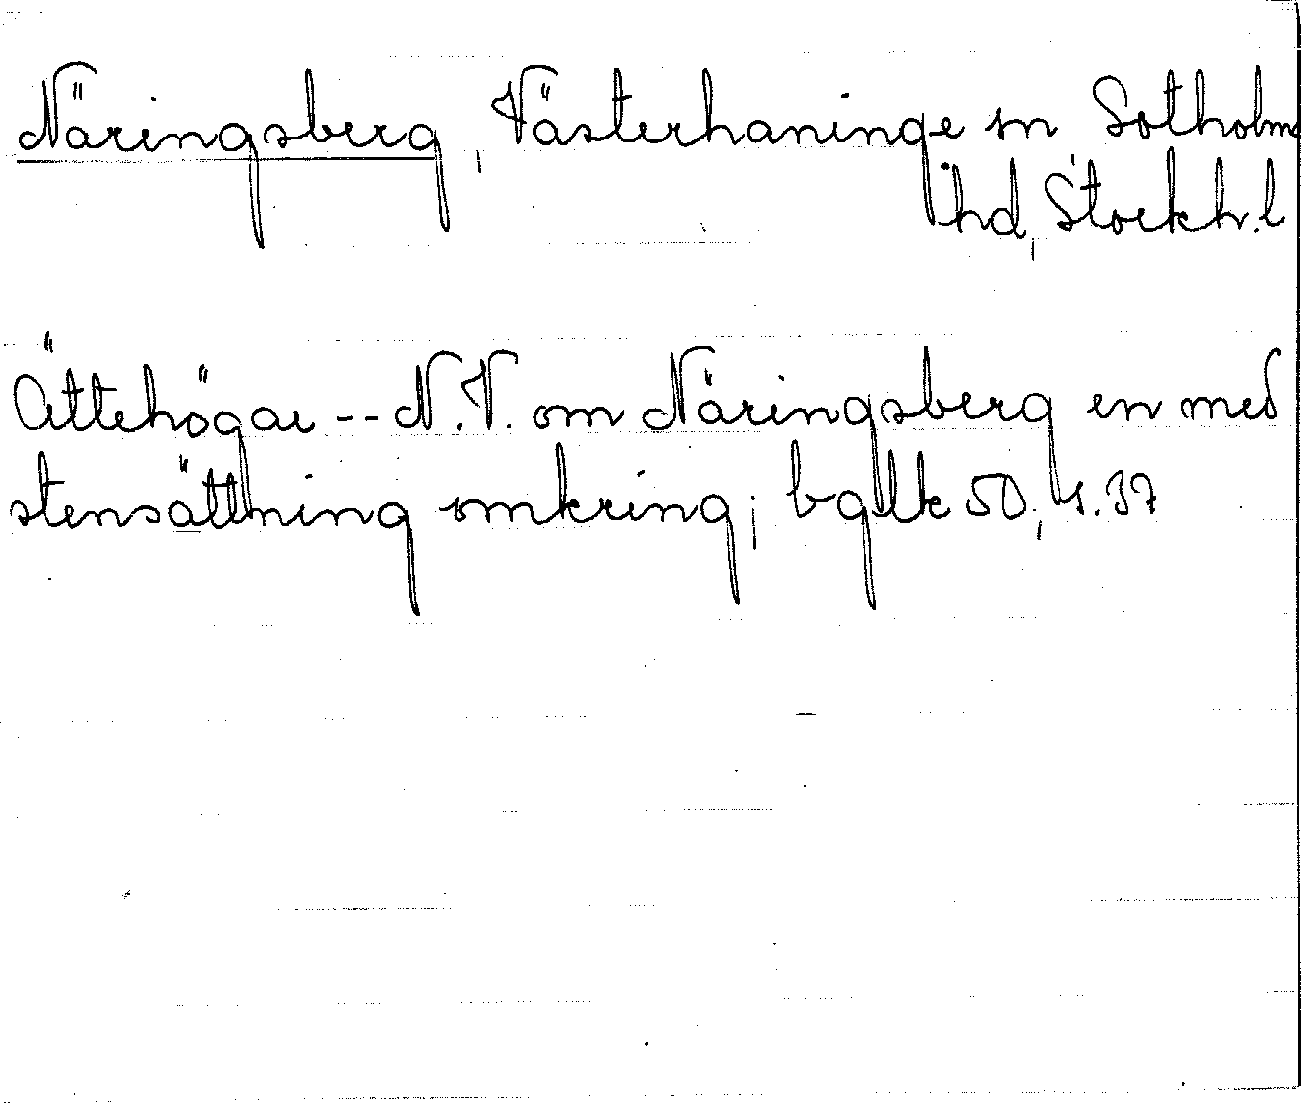 Näringsberg, Västerhaninge sn, Sotholms
hd, Stockh.l
Ättehögar -- N.V. om Näringsberg en med
stensättning omkring; bglk 50, 1.37